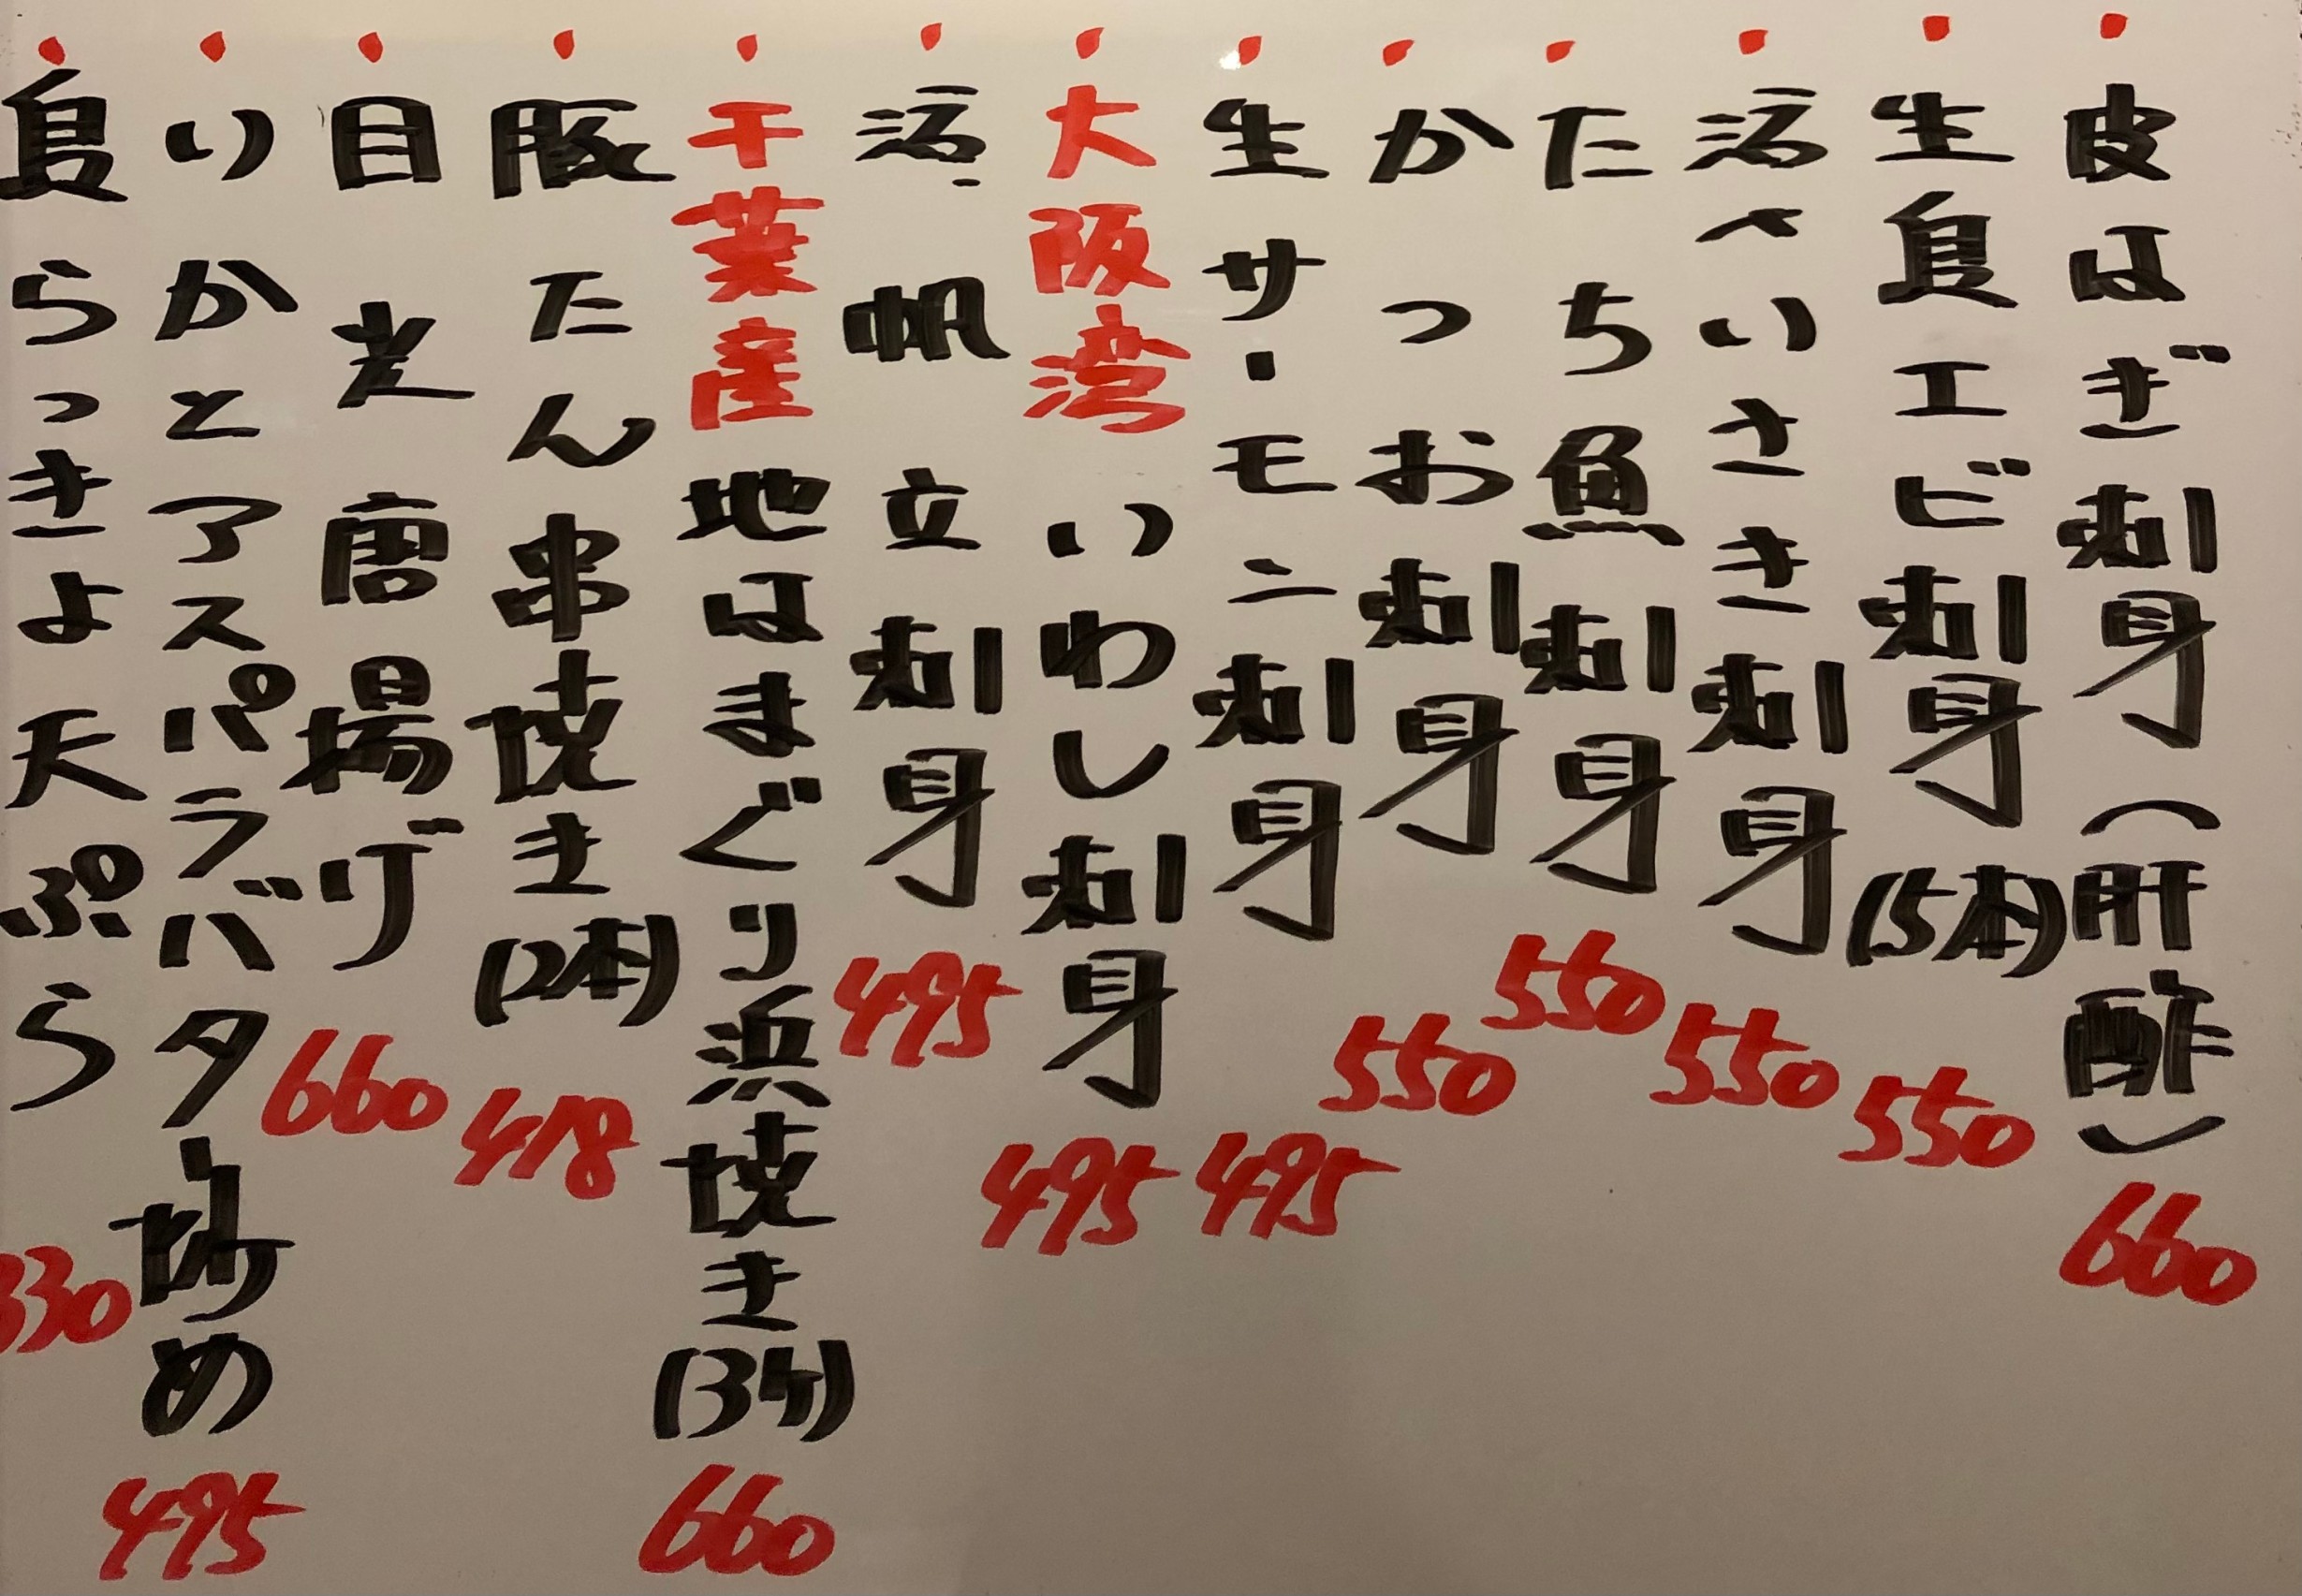 皮はぎ刺身(肝酢) 660
生島エビ刺身(5本) 550
活〆いさき刺身 550
たち魚刺身 550
かつお刺身 550
生サーモン刺身 495
大阪湾いわし刺身 495
活帆立刺身 495
千葉産地はまぐり浜焼き(3ケ) 660
豚たん串焼き(2本) 418
目光唐揚げ 660
いかとアスパラバター炒め 495
島らっきょ天ぷら 330